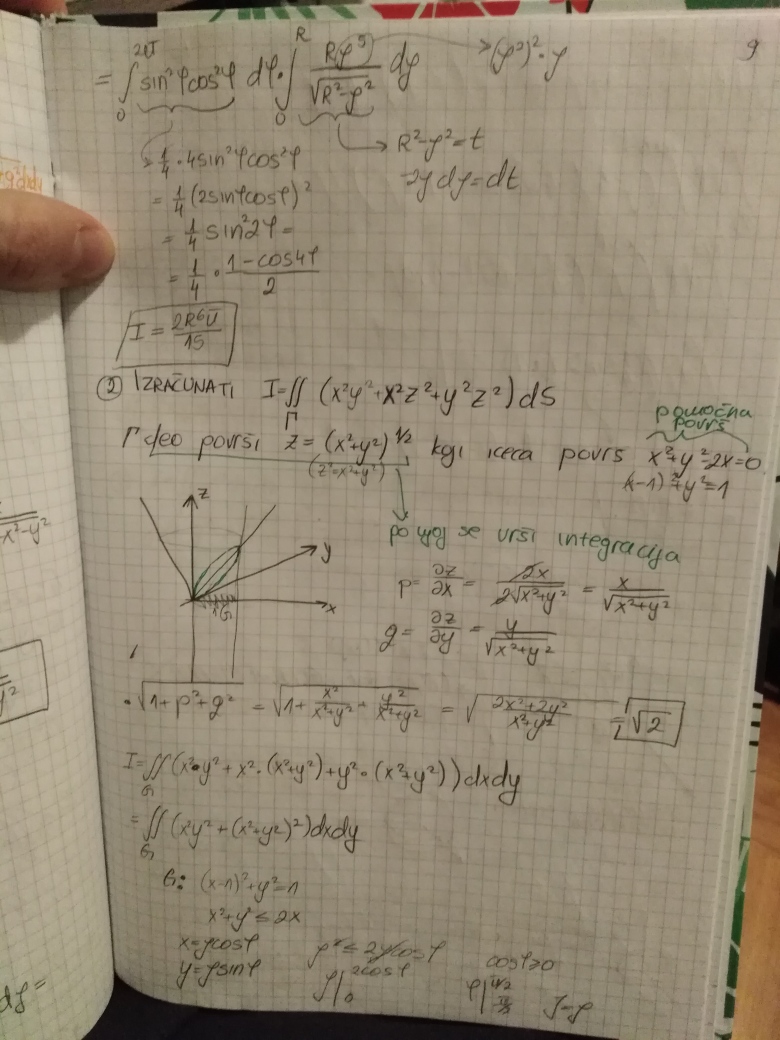 9
= ∫₀^{2π} sin²φcos²φ dφ · ∫₀^R Rρ⁵/√(R²-ρ²) dρ → (ρ²)²·ρ
R²-ρ²=t
-2ρdρ=dt
= 1/4 · 4sin²φcos²φ
= 1/4 (2sinφcosφ)²
= 1/4 sin²2φ =
= 1/4 · (1-cos4φ)/2
I = 2R⁶π/15
② IZRAČUNATI I=∬_Γ (x²y²+x²z²+y²z²)dS
pomoćna
površ
Γ deo površi z=(x²+y²)^{1/2} koji iseca površ x²+y²-2x=0
(z²=x²+y²)
(x-1)²+y²=1
z
y
x
G
po kojoj se vrši integracija
p= ∂z/∂x = 2x/2√(x²+y²) = x/√(x²+y²)
q= ∂z/∂y = y/√(x²+y²)
· √(1+p²+q²) = √(1+ x²/(x²+y²) + y²/(x²+y²)) = √((2x²+2y²)/(x²+y²)) = √2
I=∬_G (x²·y²+x²·(x²+y²)+y²·(x²+y²))dxdy
=∬_G (x²y²+(x²+y²)²)dxdy
G: (x-1)²+y²=1
x²+y²≤2x
x=ρcosφ
y=ρsinφ
ρ²≤2ρcosφ
ρ|₀^{2cosφ}
cosφ≥0
J=ρ